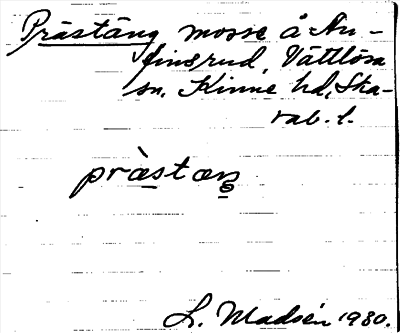 Prästäng mosse å An-
finsrud, Vättlösa
sn. Kinne hd, Ska-
rab. l.
prästæŋ
L. Madsén 1930.